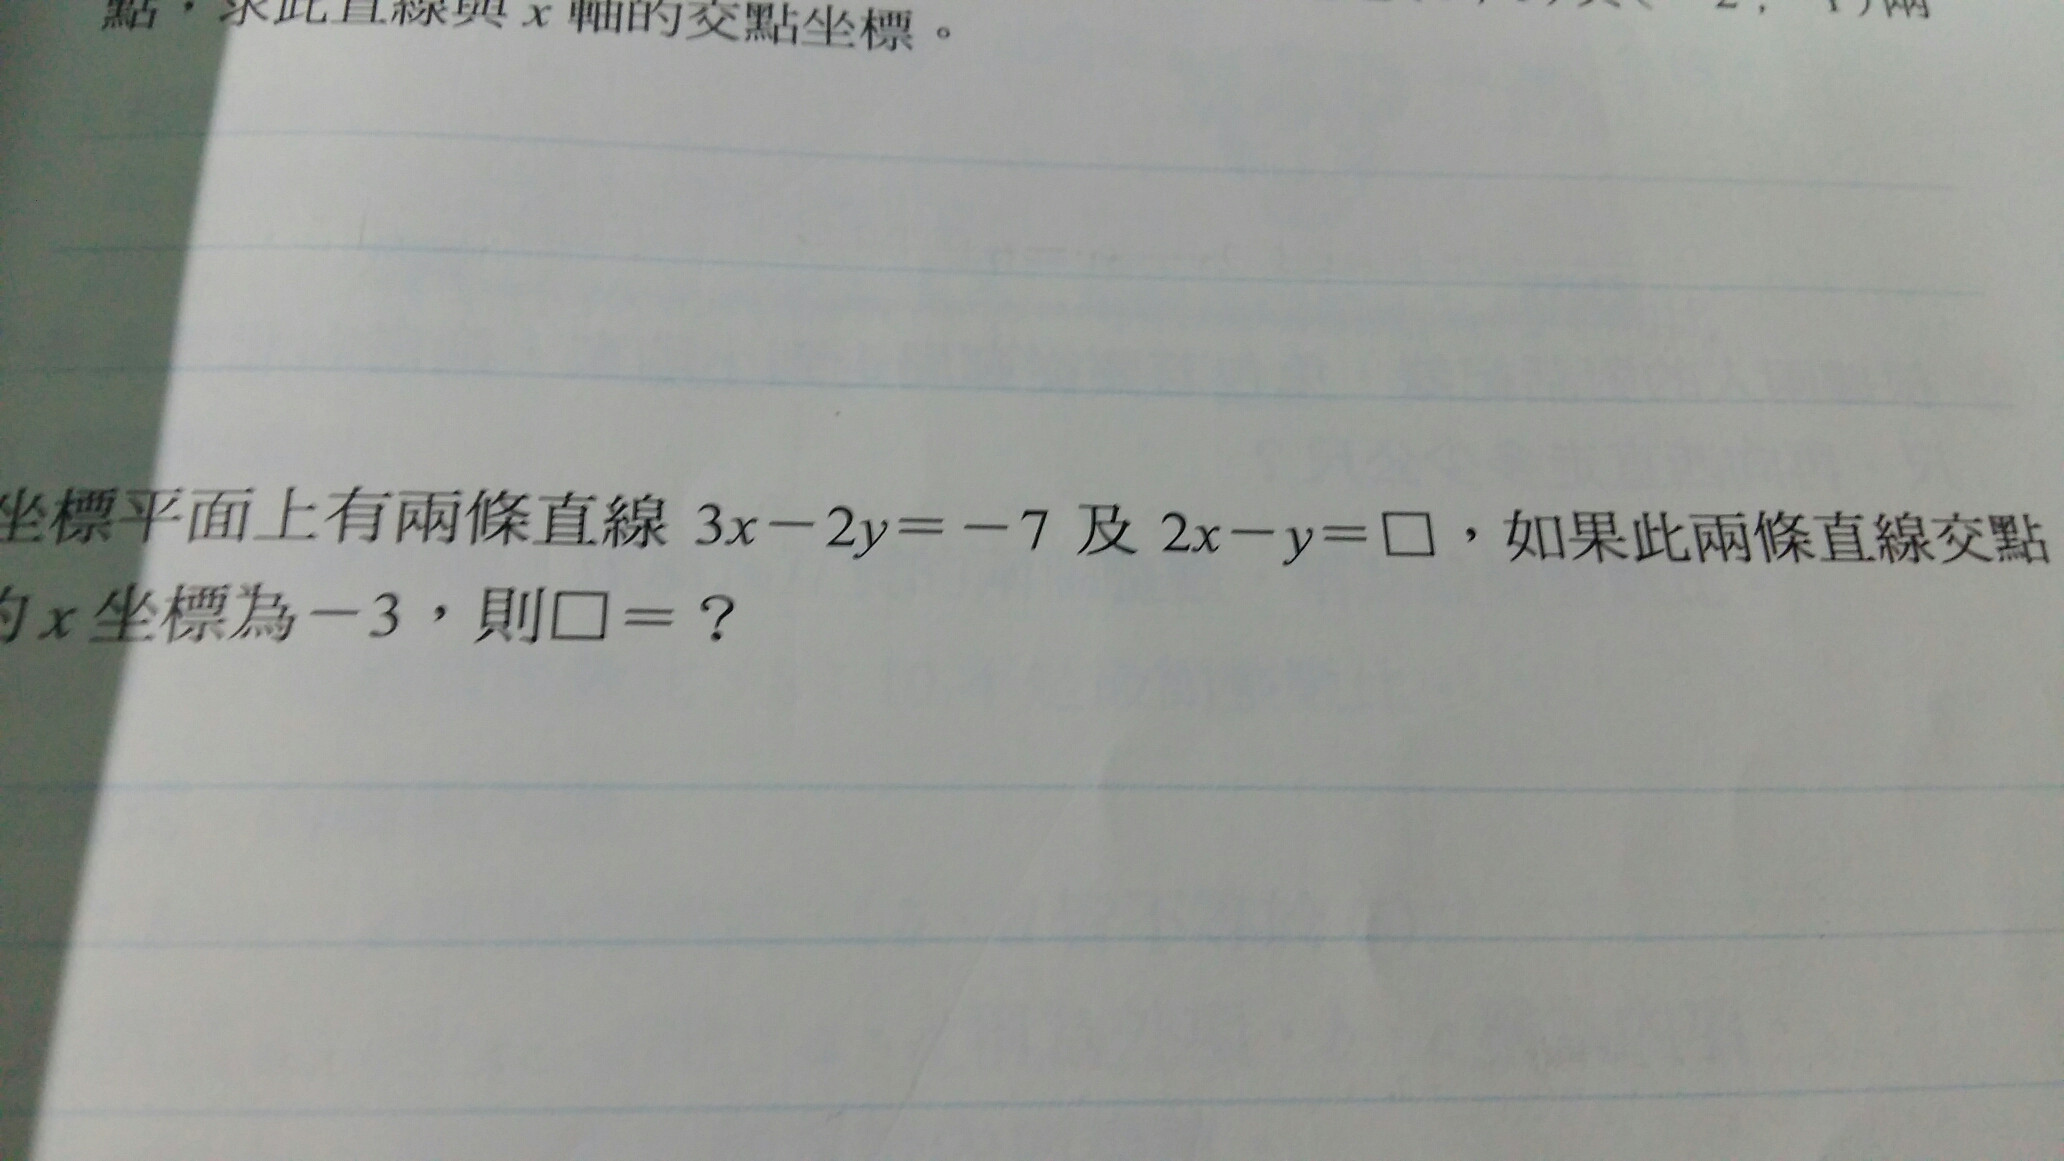 點，求此直線與 x 軸的交點坐標。
坐標平面上有兩條直線 3x－2y＝－7 及 2x－y＝□，如果此兩條直線交點
的 x 坐標為－3，則□＝？